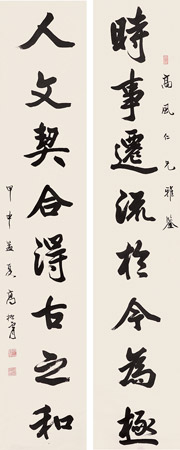 高風仁兄雅鑒
時事遷流於今為極
人文契合得古之和
甲申孟夏